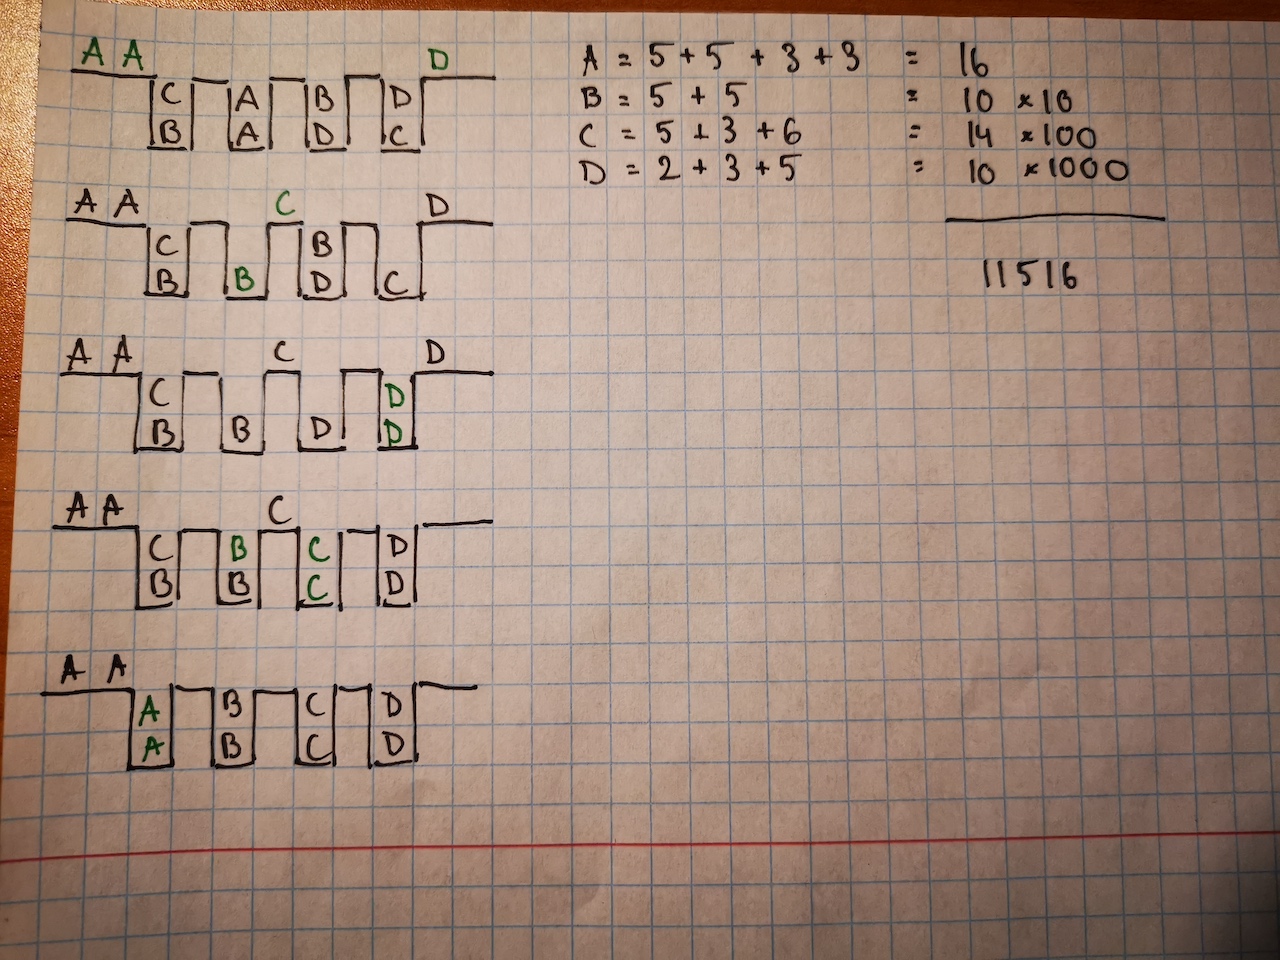 A A D
C A B D
B A D C
A A C D
C B
B B D C
A A C D
C D
B B D D
A A C
C B C D
B B C D
A A
A B C D
A B C D
A = 5 + 5 + 3 + 3 = 16
B = 5 + 5 = 10 × 10
C = 5 + 3 + 6 = 14 × 100
D = 2 + 3 + 5 = 10 × 1000
11516